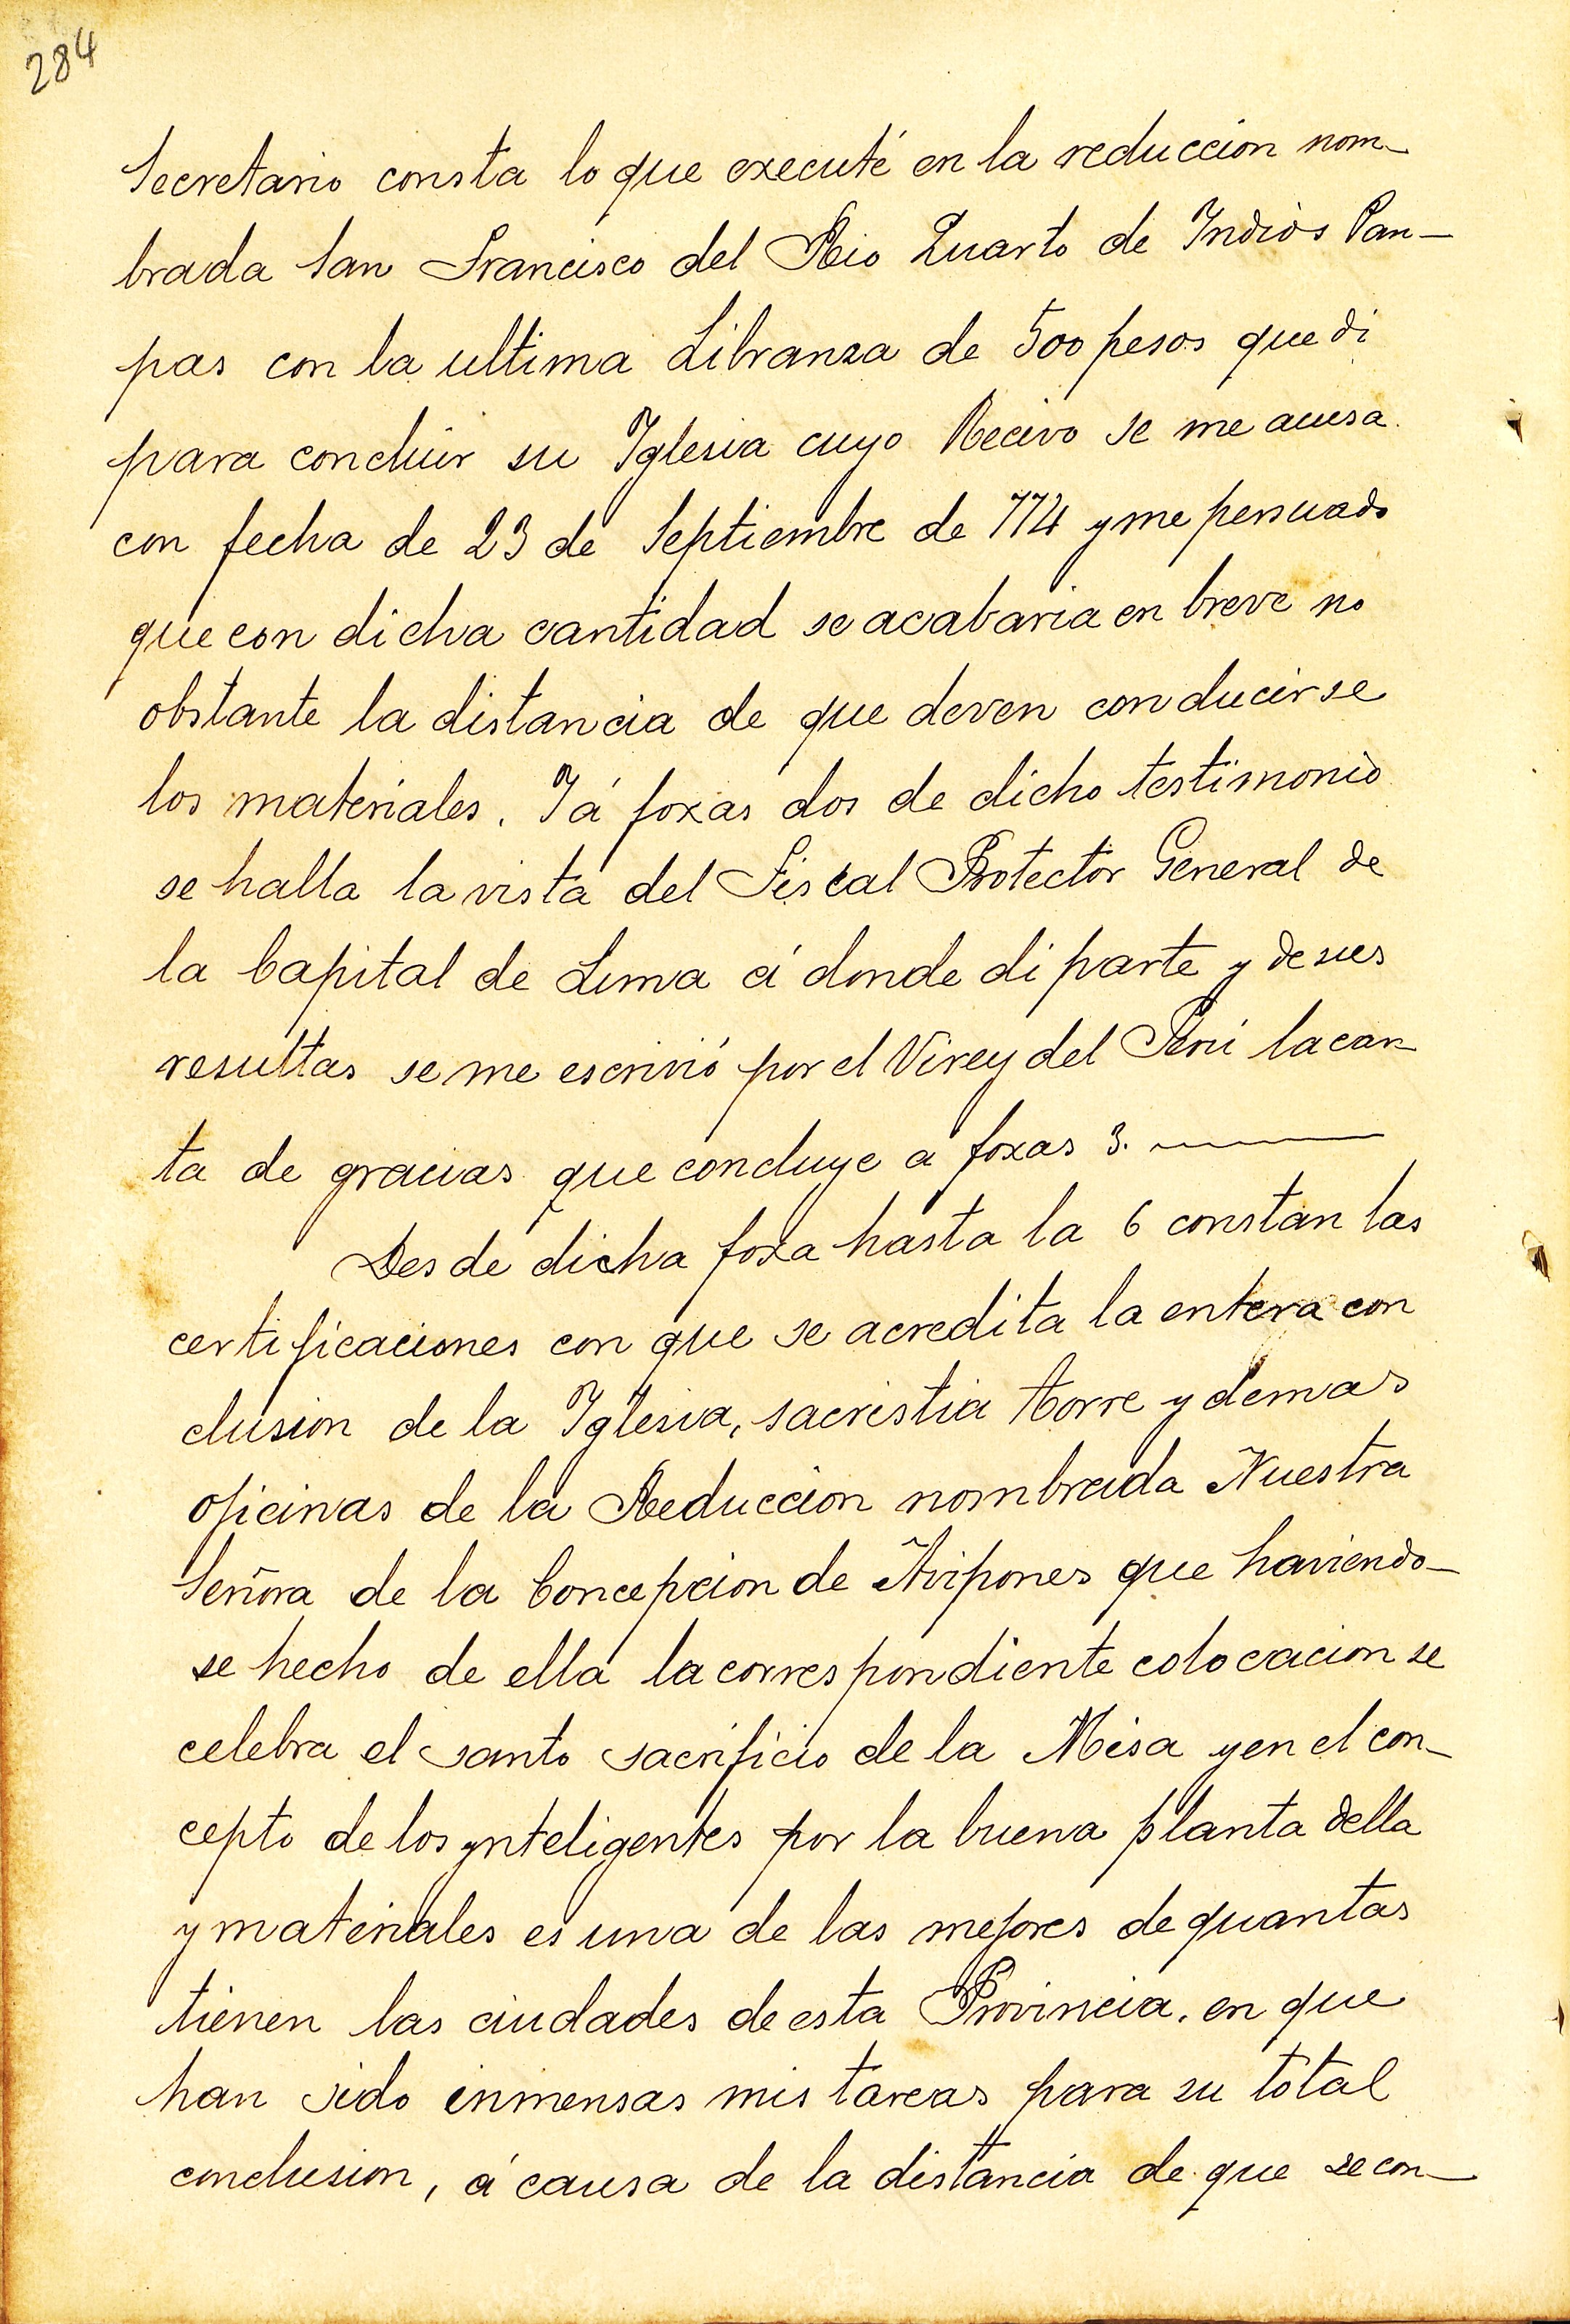 284
Secretario consta lo que executé en la reduccion nom-
brada San Francisco del Rio Quarto de Indios Pam-
pas con la ultima Libranza de 500 pesos que di
para concluir su Iglesia cuyo Recivo se me acusa
con fecha de 23 de Septiembre de 774 y me persuado
que con dicha cantidad se acabaria en breve no
obstante la distancia de que deven conducirse
los materiales. Y á foxas dos de dicho testimonio
se halla la vista del Fiscal Protector General de
la Capital de Lima á donde di parte y de sus
resultas se me escrivió por el Virey del Perú la car
ta de gracias que concluye a foxas 3.
Desde dicha foxa hasta la 6 constan las
certificaciones con que se acredita la entera con
clusion de la Iglesia, sacristia torre y demas
oficinas de la Reduccion nombrada Nuestra
Señora de la Concepcion de Avipones que haviendo-
se hecho de ella la correspondiente colocacion se
celebra el santo sacrificio de la Misa y en el con-
cepto de los ynteligentes por la buena planta della
y materiales es una de las mejores de quantas
tienen las ciudades de esta Provincia, en que
han sido inmensas mis tareas para su total
conclusion, á causa de la distancia de que se con-